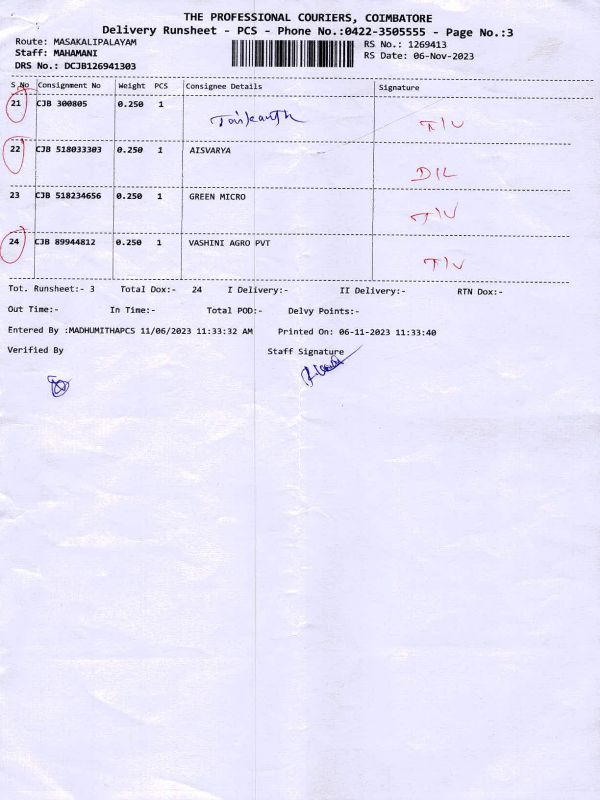 THE PROFESSIONAL COURIERS, COIMBATORE
Delivery Runsheet - PCS - Phone No.:0422-3505555 - Page No.:3
Route: MASAKALIPALAYAM
RS No.: 1269413
Staff: MAHAMANI
RS Date: 06-Nov-2023
DRS No.: DCJB126941303
S.No Consignment No Weight PCS Consignee Details Signature
21 CJB 300805 0.250 1
T/V
22 CJB 518033303 0.250 1 AISVARYA
D/L
23 CJB 518234656 0.250 1 GREEN MICRO
T/V
24 CJB 89944812 0.250 1 VASHINI AGRO PVT
T/V
Tot. Runsheet:- 3 Total Dox:- 24 I Delivery:- II Delivery:- RTN Dox:-
Out Time:- In Time:- Total POD:- Delvy Points:-
Entered By :MADHUMITHAPCS 11/06/2023 11:33:32 AM Printed On: 06-11-2023 11:33:40
Verified By Staff Signature